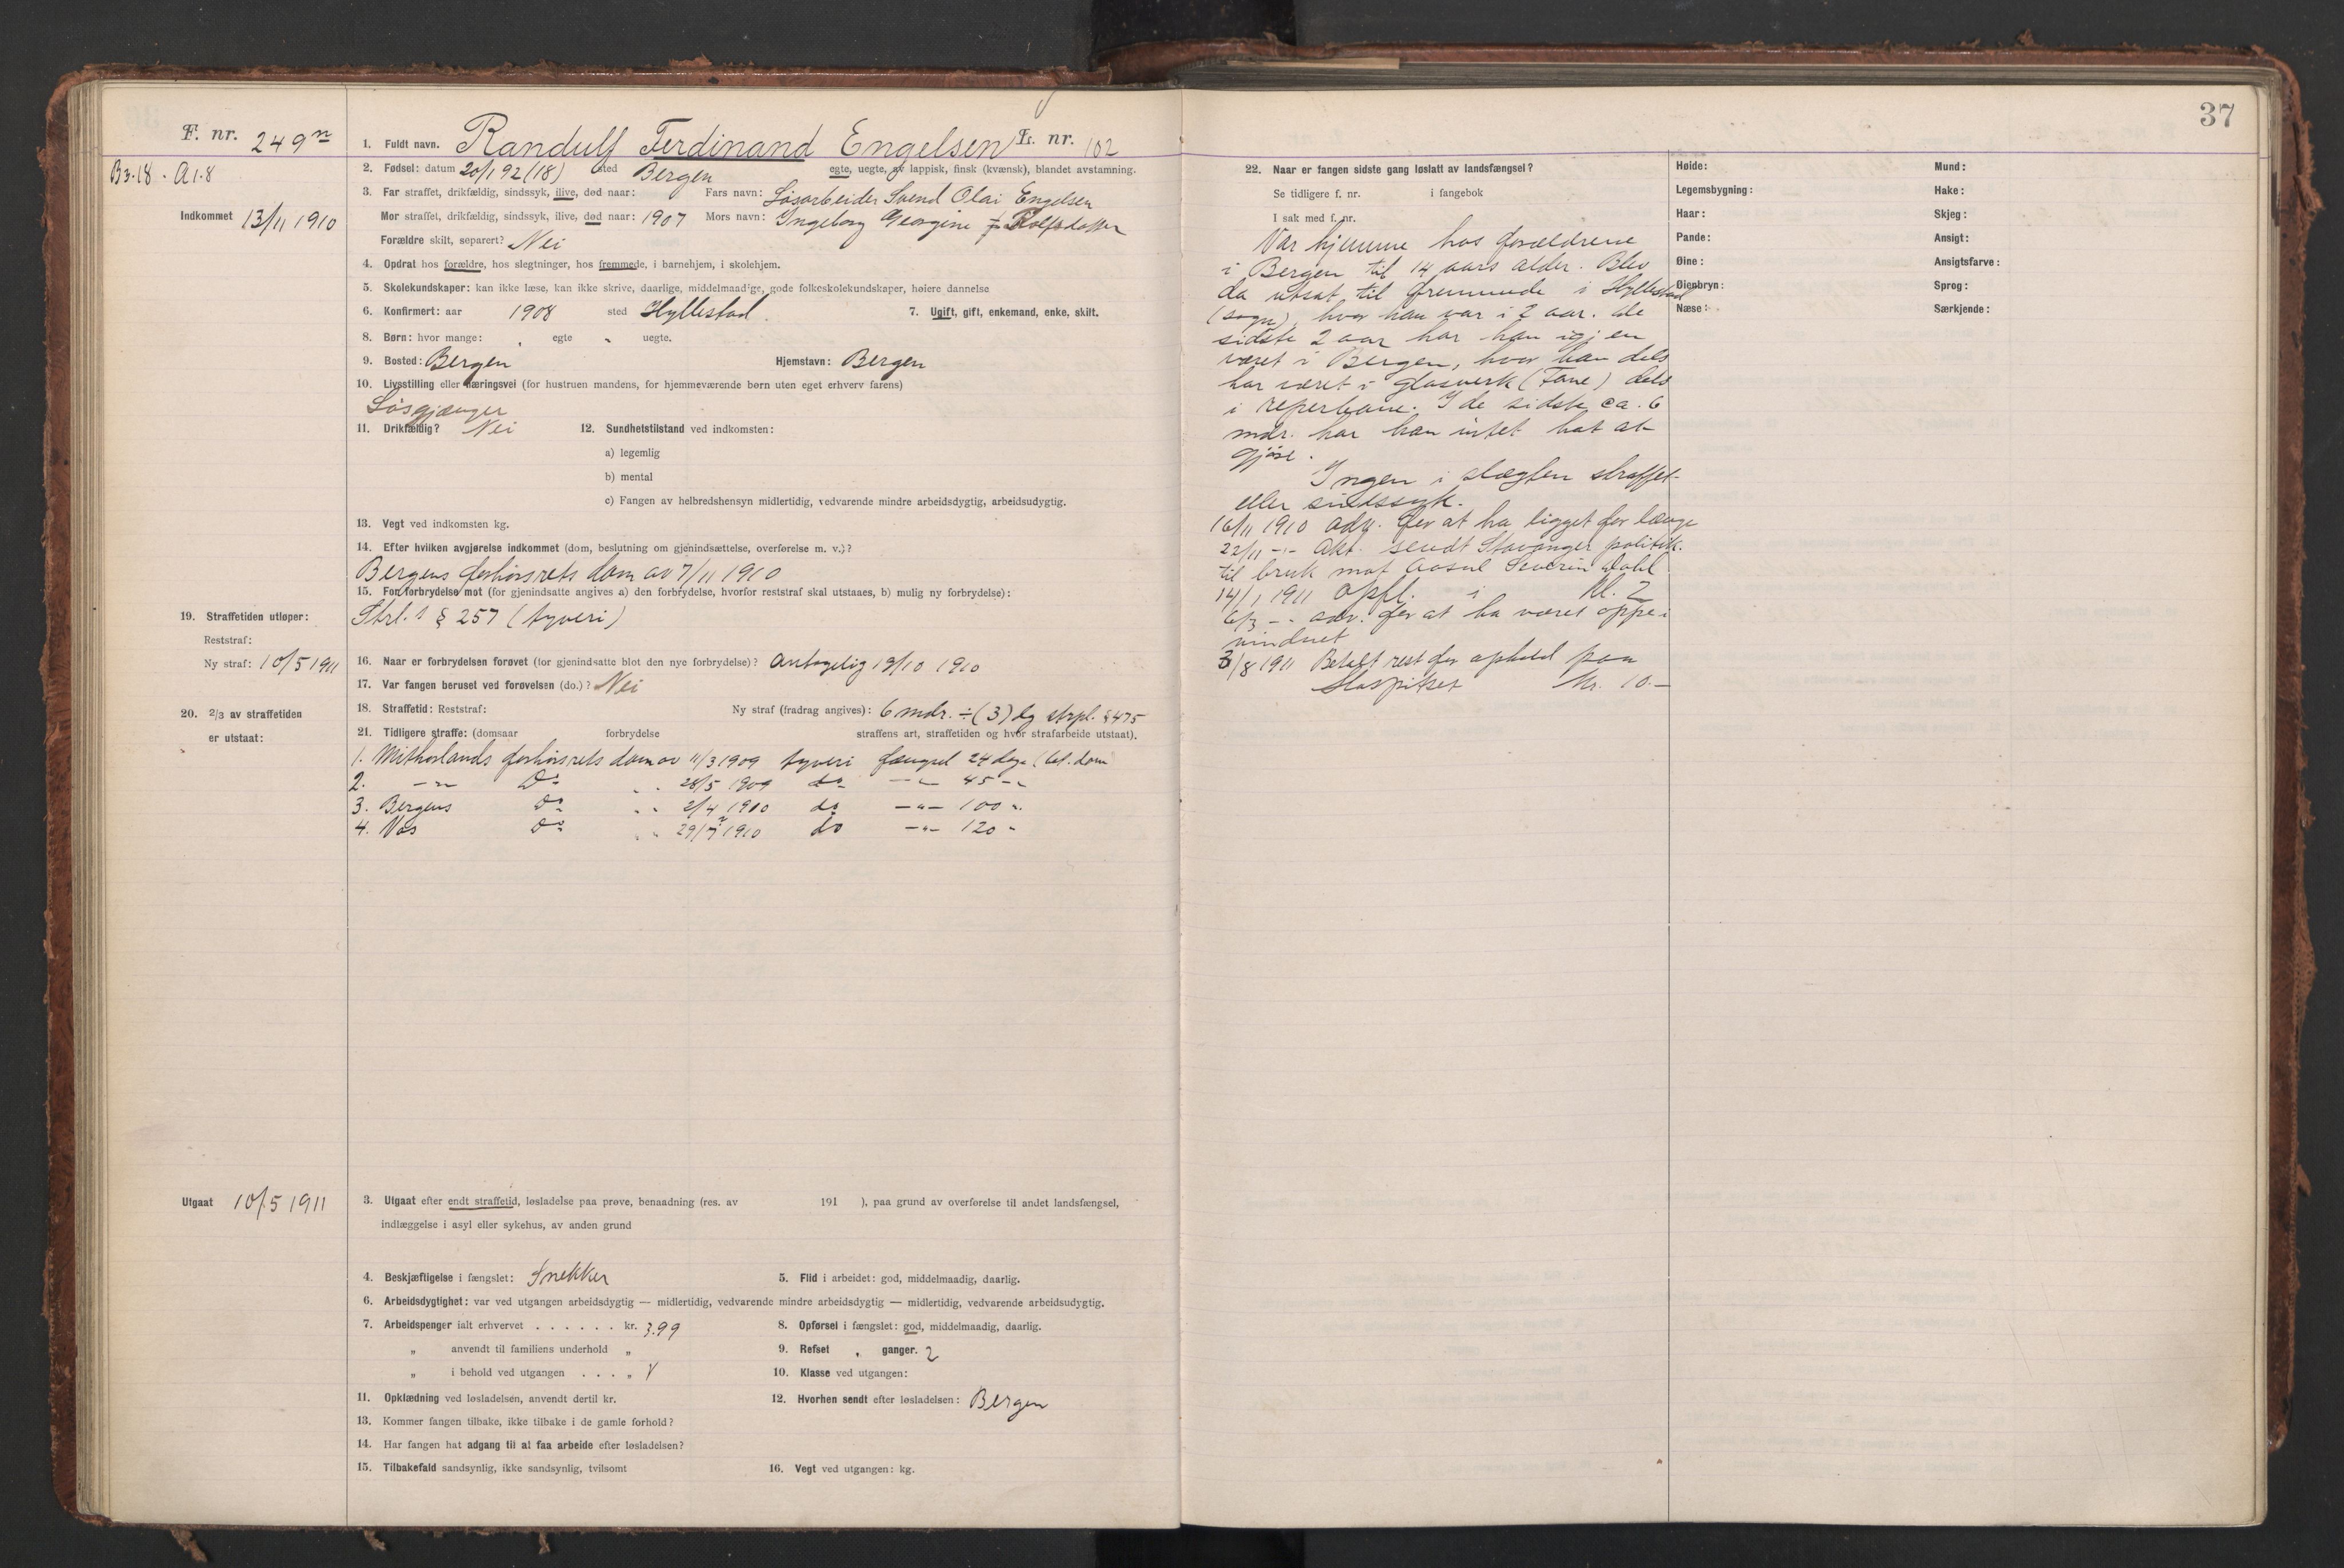 37
F. nr. 249
B3.18 . A1.8
Indkommet 13/11 1910
1. Fuldt navn. Randulf Ferdinand Engelsen L. nr. 102
2. Fødsel: datum 20/1 92 (18) sted Bergen egte, uegte, av lappisk, finsk (kvænsk), blandet avstamning.
3. Far straffet, drikfældig, sindssyk, ilive, død naar: Fars navn: Løsarbeider Svend Olai Engelsen
Mor straffet, drikfældig, sindssyk, ilive, død naar: 1907 Mors navn: Ingeborg Georgine f. Rolfsdatter
Forældre skilt, separert? Nei
4. Opdrat hos forældre, hos slegtninger, hos fremmede, i barnehjem, i skolehjem.
5. Skolekundskaper: kan ikke læse, kan ikke skrive, daarlige, middelmaadige, gode folkeskolekundskaper, høiere dannelse
6. Konfirmert: aar 1908 sted Hyllestad. 7. Ugift, gift, enkemand, enke, skilt.
8. Børn: hvor mange: " egte " uegte.
9. Bosted: Bergen Hjemstavn: Bergen
10. Livsstilling eller næringsvei (for hustruen mandens, for hjemmeværende børn uten eget erhverv farens)
Løsgjænger
11. Drikfældig? Nei 12. Sundhetstilstand ved indkomsten:
a) legemlig
b) mental
c) Fangen av helbredshensyn midlertidig, vedvarende mindre arbeidsdygtig, arbeidsudygtig.
13. Vegt ved indkomsten kg.
14. Efter hvilken avgjørelse indkommet (dom, beslutning om gjenindsættelse, overførelse m. v.)?
Bergens forhørsrets dom av 7/11 1910
15. For forbrydelse mot (for gjenindsatte angives a) den forbrydelse, hvorfor reststraf skal utstaaes, b) mulig ny forbrydelse):
Strl. § 257 (tyveri)
19. Straffetiden utløper:
Reststraf:
Ny straf: 10/5 1911
16. Naar er forbrydelsen forøvet (for gjenindsatte blot den nye forbrydelse)? Antagelig 19/10 1910
17. Var fangen beruset ved forøvelsen (do.)? Nei
20. 2/3 av straffetiden
er utstaat:
18. Straffetid: Reststraf: Ny straf (fradrag angives): 6 mdr. ÷ (3) dg strpl. § 475
21. Tidligere straffe: (domsaar forbrydelse straffens art, straffetiden og hvor strafarbeide utstaat).
1. Mithorlands forhørsrets dom av 11/3 1909 tyveri fængsel 24 dage (bet. dom
2. -"- Do " " 28/5 1909 do -"- 45 -"-
3. Bergens Do " " 2/4 1910 do -"- 100 "
4. Vos Do " " 29/7 1910 do -"- 120 "
Utgaat 10/5 1911
3. Utgaat efter endt straffetid, løsladelse paa prøve, benaadning (res. av 191 ), paa grund av overførelse til andet landsfængsel,
indlæggelse i asyl eller sykehus, av anden grund
4. Beskjæftigelse i fængslet: Snekker 5. Flid i arbeidet: god, middelmaadig, daarlig.
6. Arbeidsdygtighet: var ved utgangen arbeidsdygtig — midlertidig, vedvarende mindre arbeidsdygtig — midlertidig, vedvarende arbeidsudygtig.
7. Arbeidspenger ialt erhvervet . . . . . . kr. 3.99 8. Opførsel i fængslet: god, middelmaadig, daarlig.
" anvendt til familiens underhold " 9. Refset , ganger. 2
" i behold ved utgangen . . . . " 10. Klasse ved utgangen:
11. Opklædning ved løsladelsen, anvendt dertil kr. 12. Hvorhen sendt efter løsladelsen: Bergen
13. Kommer fangen tilbake, ikke tilbake i de gamle forhold?
14. Har fangen hat adgang til at faa arbeide efter løsladelsen?
15. Tilbakefald sandsynlig, ikke sandsynlig, tvilsomt 16. Vegt ved utgangen: kg.
22. Naar er fangen sidste gang løslatt av landsfængsel?
Se tidligere f. nr. i fangebok
I sak med f. nr.
Var hjemme hos forældrene
i Bergen til 14 aars alder. Blev
da utsat til fremmede i Hyllestad
(sogn), hvor han var i 2 aar. de
sidste 2 aar har han igjen
været i Bergen, hvor han dels
har været i glasverk (Fane) dels
i reperbane. I de sidste ca. 6
mdr. har han intet hat at
gjøre.
Ingen i slægten straffet
eller sindssyk.
16/11 1910 adv. for at ha ligget for længe
22/11 -"- Akt. sendt Stavanger politik.
til bruk mot Aasul Severin Dahl
14/1 1911 Opfl. i kl. 2
6/3 -"- adv. for at ha været oppe i
vinduet
3/8 1911 Betalt rest for ophold paa
Hospitset kr. 10.—
Høide:
Legemsbygning:
Haar:
Pande:
Øine:
Øienbryn:
Næse:
Mund:
Hake:
Skjeg:
Ansigt:
Ansigtsfarve:
Sprog:
Særkjende: